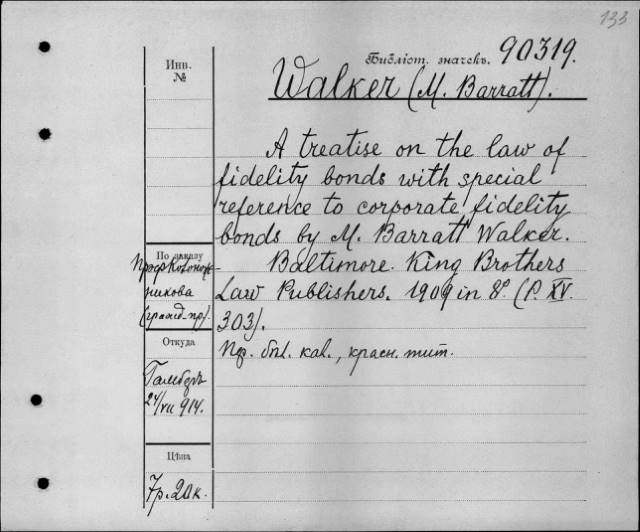 133
Библіот. значекъ. 90319.
Walker (M. Barratt).
A treatise on the law of
fidelity bonds with special
reference to corporate fidelity
bonds by M. Barratt Walker.
Baltimore. King Brothers
Law Publishers. 1909 in 8°. (P. XV.
303).
Пр. кал., красн. тит.
Инв.
№
По заказу
Проф
никова
(гражд. пр).
Откуда
24/VII 914.
Цѣна
7р. 20к.